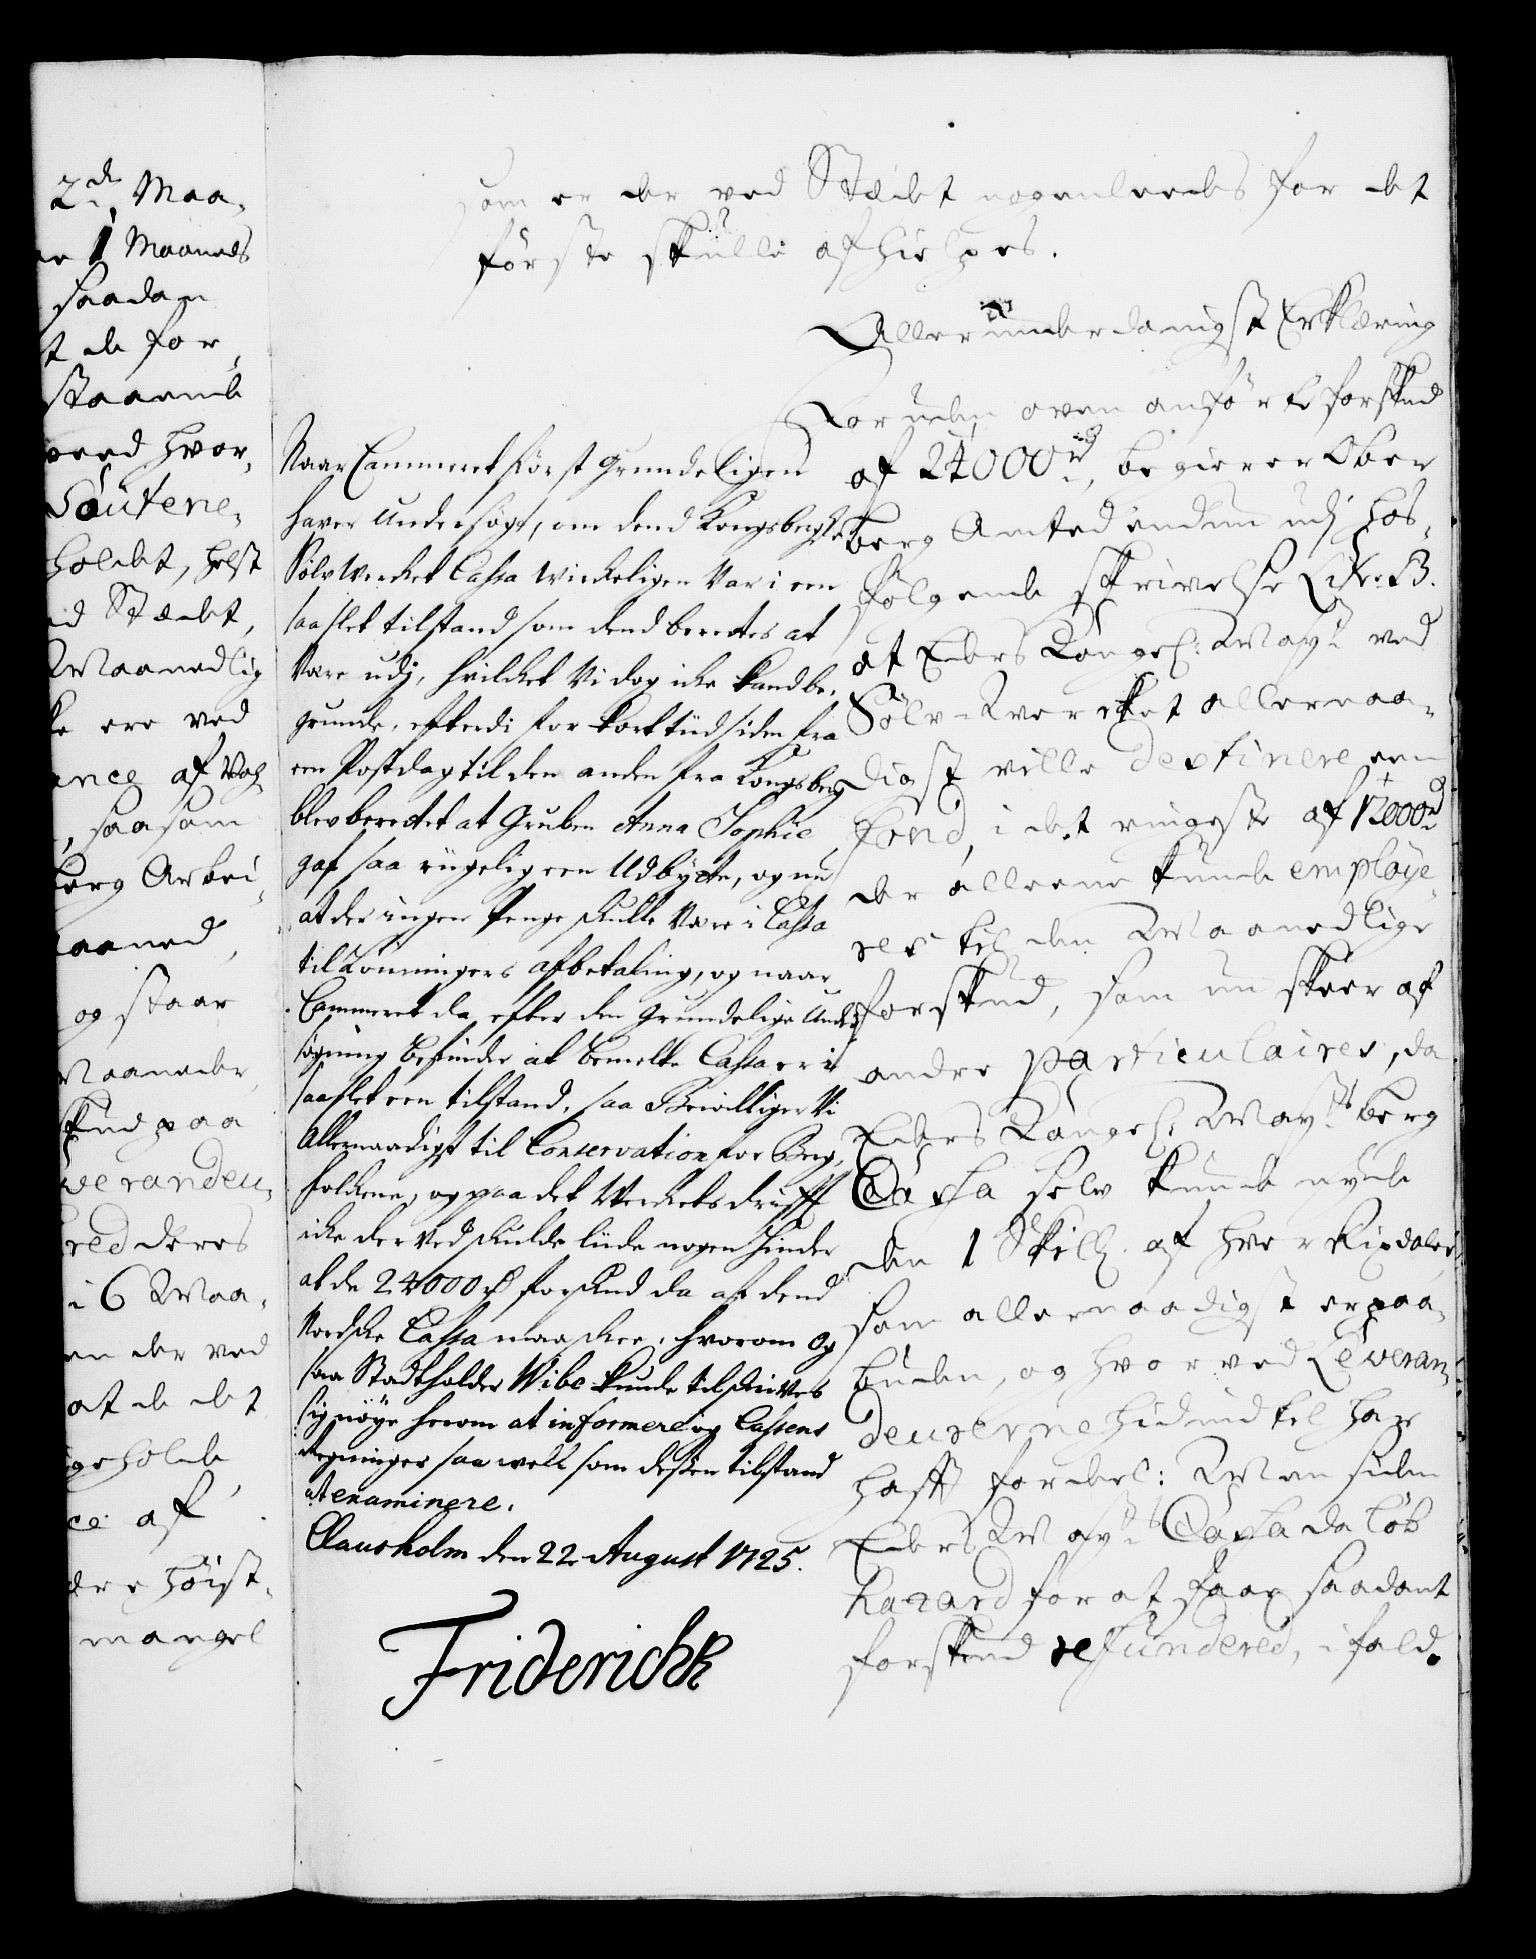 2de Maa-
1 Maaneds
saadan
t de for-
staaende
hvor-
Soutene-
holdet, helst
d Stædet,
Maanedlig
ere ved
ance af Vah
, saasom
berg Arbei-
aaned,
og staar
Maaneder
skud paa
veranden-
red deres
i 6 Maa-
en der ved
at de det
geholde
ce af
dre höist-
mangel
som er der ved Stædet nogenleedes for det
förste skulle afhielpes.
Allerunderdanigst Erklæring
For uden oven anförte forskud
af 24000 rd, begierer Ober
berg Amtet endnu udj hos-
fölgende skrivelse Litr. B.
at Eders Kongel: May:t ved
Sölv-Wercket allernaa-
digst ville destinere een
fond, i det ringeste af 12000 rd
der alleene kunde employe-
res til den Maanedlige
forskud, som nu skeer af
andre particulaires, da
Eders Kongel: May:ts berg
Cassa selv kunde nyde
den 1 Skill. af hver Rixdaler
som allernaadigst er paa-
buden, og hvorved Leveran-
deurerne hidindtil har
hafft fordel: Men siden
Eders May:ts Cassa da löb
hazard for at faae saadant
forskud refundered, ifald
Naar Cammeret först grundeligen
haver undersögt, om dend Kongsbergske
Sölv Werckets Cassa wirckeligen var i een
saa slet tilstand som dend berettes at
være udj, hvilcket Vi dog icke kand be-
grunde, efterdi for kort tiid siden fra
een Postdag til den anden fra Kongsberg
blev berettet at Gruben Anna Sophie
gaf saa riigelig een Udbytte, og nu
at der ingen Penge skulle være i Cassa
til Lönningers afbetaling, og naar
Cammeret da efter den grundelige Under-
sögning befinder at bemelte Cassa er i
saa slet een tilstand, saa Bevilliger Vi
Allernaadigst til Conservation for Berg-
folckene, og paa det Werckets drifft
icke derved skulde liide nogen hinder
at de 24000 rd forskud da af dend
Nordske Cassa maa skee, hvorom og
saa Stadtholder Wibe kunde tilskrives
sig nöye herom at informere og Cassens
Regninger saa well som dessen tilstand
at examinere.
Clausholm den 22 August 1725.
Friderich R